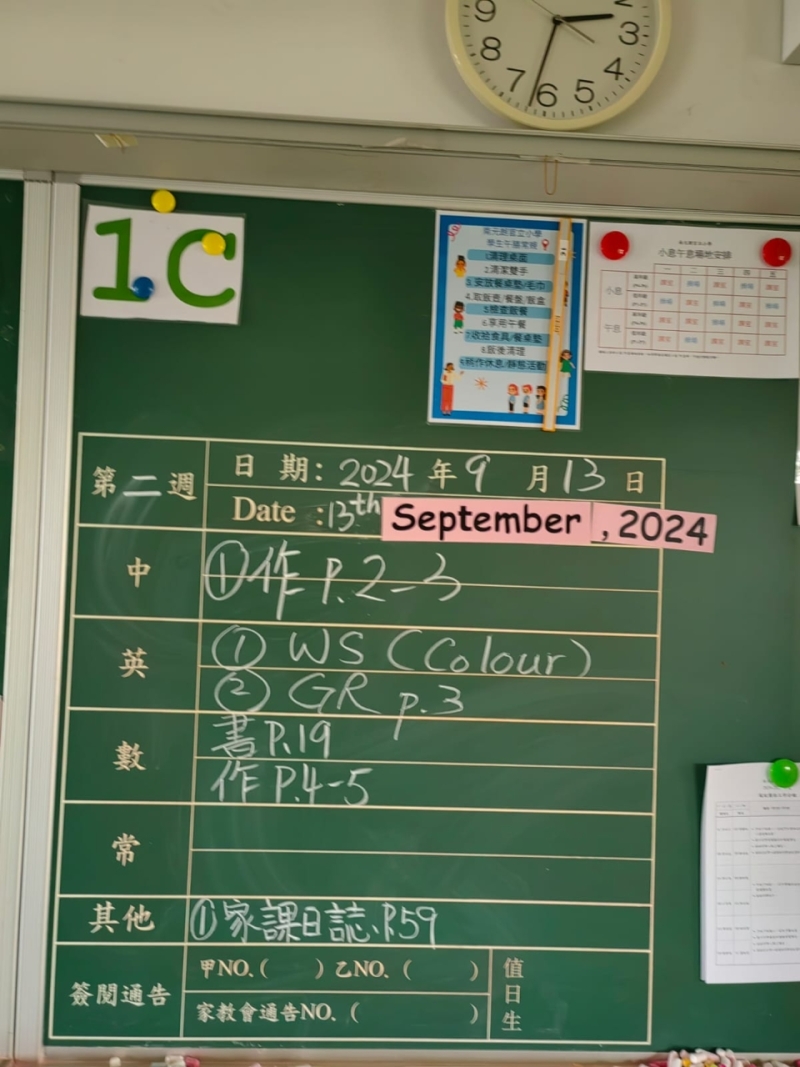 9
2
3
8
4
7
6
5
1C
南元朗官立小學
學生午膳常規
1.清理桌面
2.清潔雙手
3.安放餐桌墊/毛巾
4.取飯壺/餐盤/飯盒
5.檢查飯餐
6.享用午餐
7.收拾食具/餐桌墊
8.飯後清理
9.稍作休息/靜態活動
小息午息場地安排
一 二 三 四 五
小息
午息
第二週
日期: 2024年9月13日
Date : 13th September, 2024
中
①作 P.2-3
英
① WS (Colour)
② GR p.3
數
書 P.19
作 P.4-5
常
其他
①家課日誌 P.59
簽閱通告
甲NO.( ) 乙NO.( )
家教會通告NO.( )
值日生